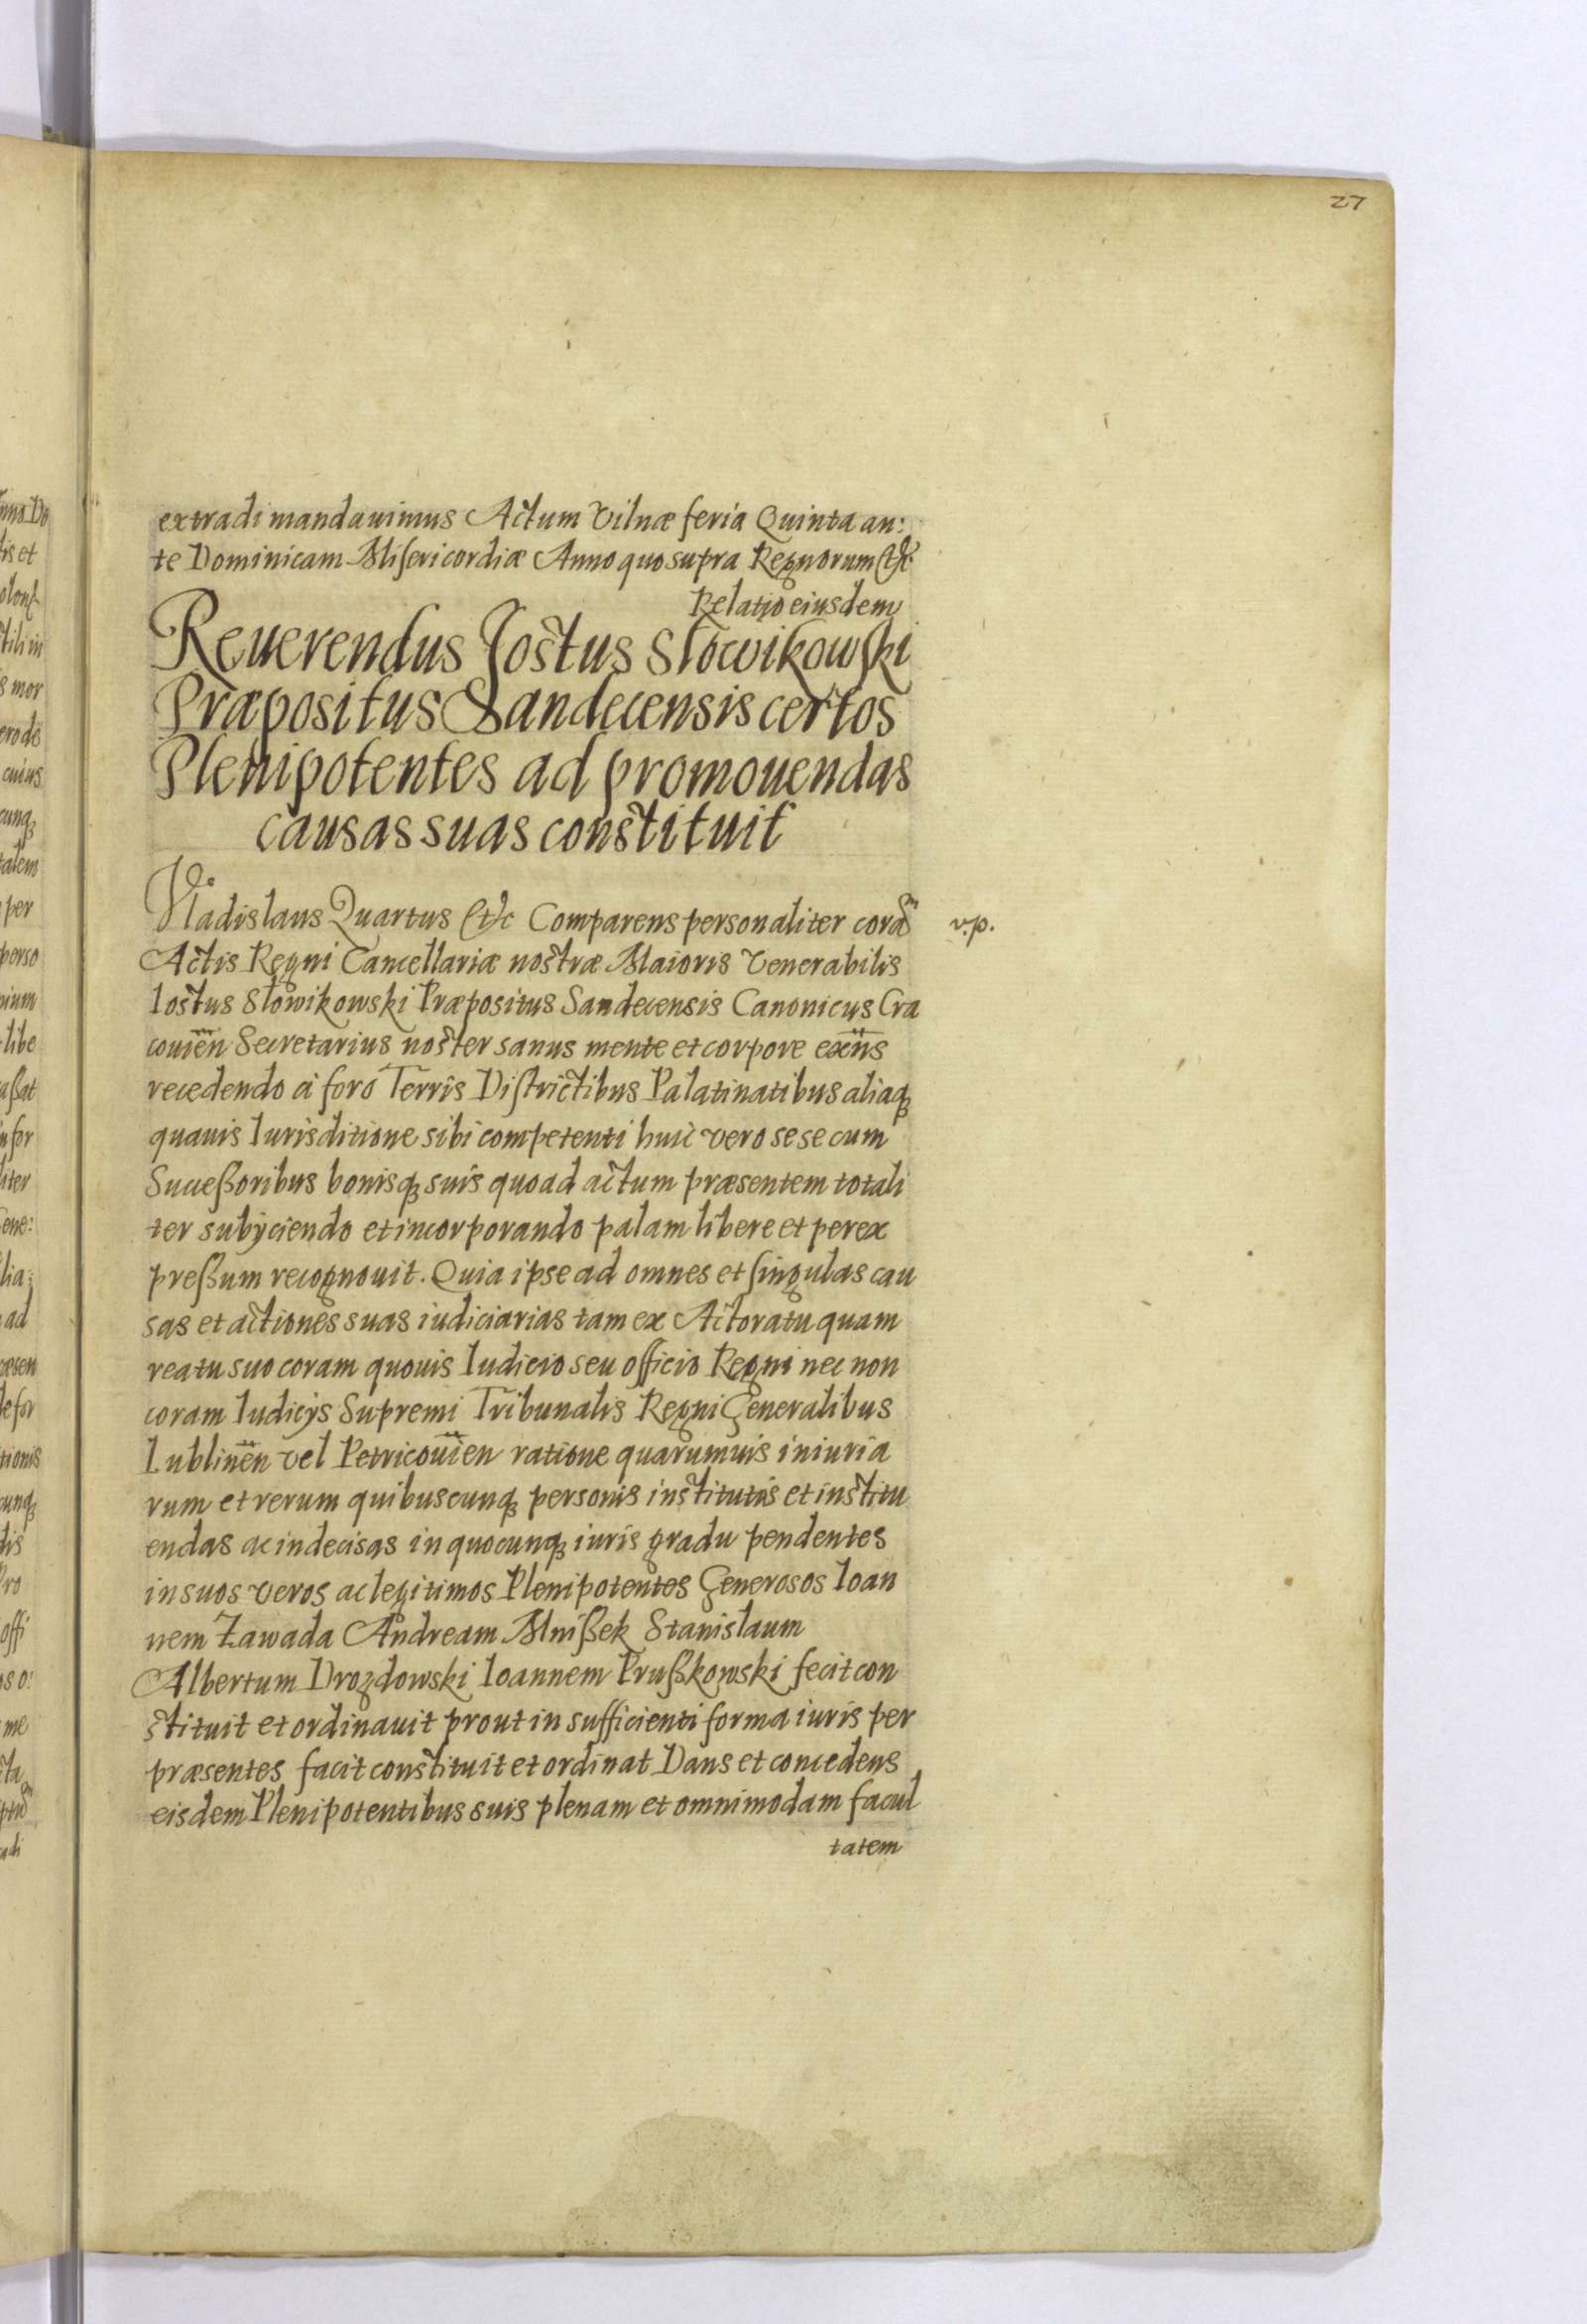 27
extradi mandauimus Actum Vilnæ feria Quinta an:
te Dominicam Misericordiæ Anno quo supra Regnorum etc.
Relatio eiusdem
Reuerendus Jostus Słowikowski
Præpositus Sandecensis certos
Plenipotentes ad promouendas
causas suas constituit
Vladislaus Quartus etc Comparens personaliter corã
v.p.
Actis Regni Cancellariæ nostræ Maioris Venerabilis
Iostus Słowikowski Præpositus Sandecensis Canonicus Cra
couien̄ Secretarius noster sanus mente et corpore exn̄s
recedendo à foro Terris Districtibus Palatinatibus aliaq;
quauis Iurisditione sibi competenti huic vero sese cum
Sucessoribus bonisq; suis quoad actum præsentem totali
ter subijciendo et incorporando palam libere et per ex
pressum recognouit. Quia ipse ad omnes et singulas cau
sas et actiones suas iudiciarias tam ex Actoratu quam
reatu suo coram quouis Iudicio seu officio Regni nec non
coram Iudicijs Supremi Tribunalis Regni Generalibus
Lublinen̄ vel Petricouien̄ ratione quarumuis iniuria
rum et rerum quibuscunq; personis institutis et institu
endas ac indecisas in quocunq; iuris gradu pendentes
in suos veros ac legitimos Plenipotentes Generosos Ioan
nem Zawada Andream Mnißek Stanislaum
Albertum Drozdowski Ioannem Prußkowski fecit con
stituit et ordinauit prout in sufficienti forma iuris per
præsentes facit constituit et ordinat Dans et concedens
eisdem Plenipotentibus suis plenam et omnimodam facul
tatem